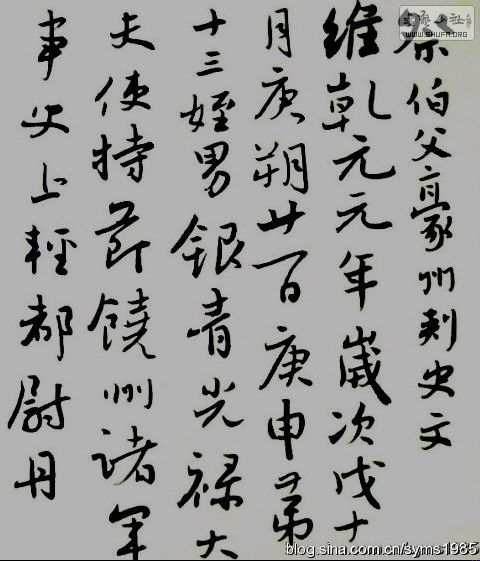 祭伯父豪州刺史文
維乾元元年歲次戊十
月庚朔廿一日庚申第
十三姪男銀青光禄大
夫使持節饒州諸軍
事史上輕都尉丹
WWW.SHUFA.ORG
blog.sina.com.cn/syms1985